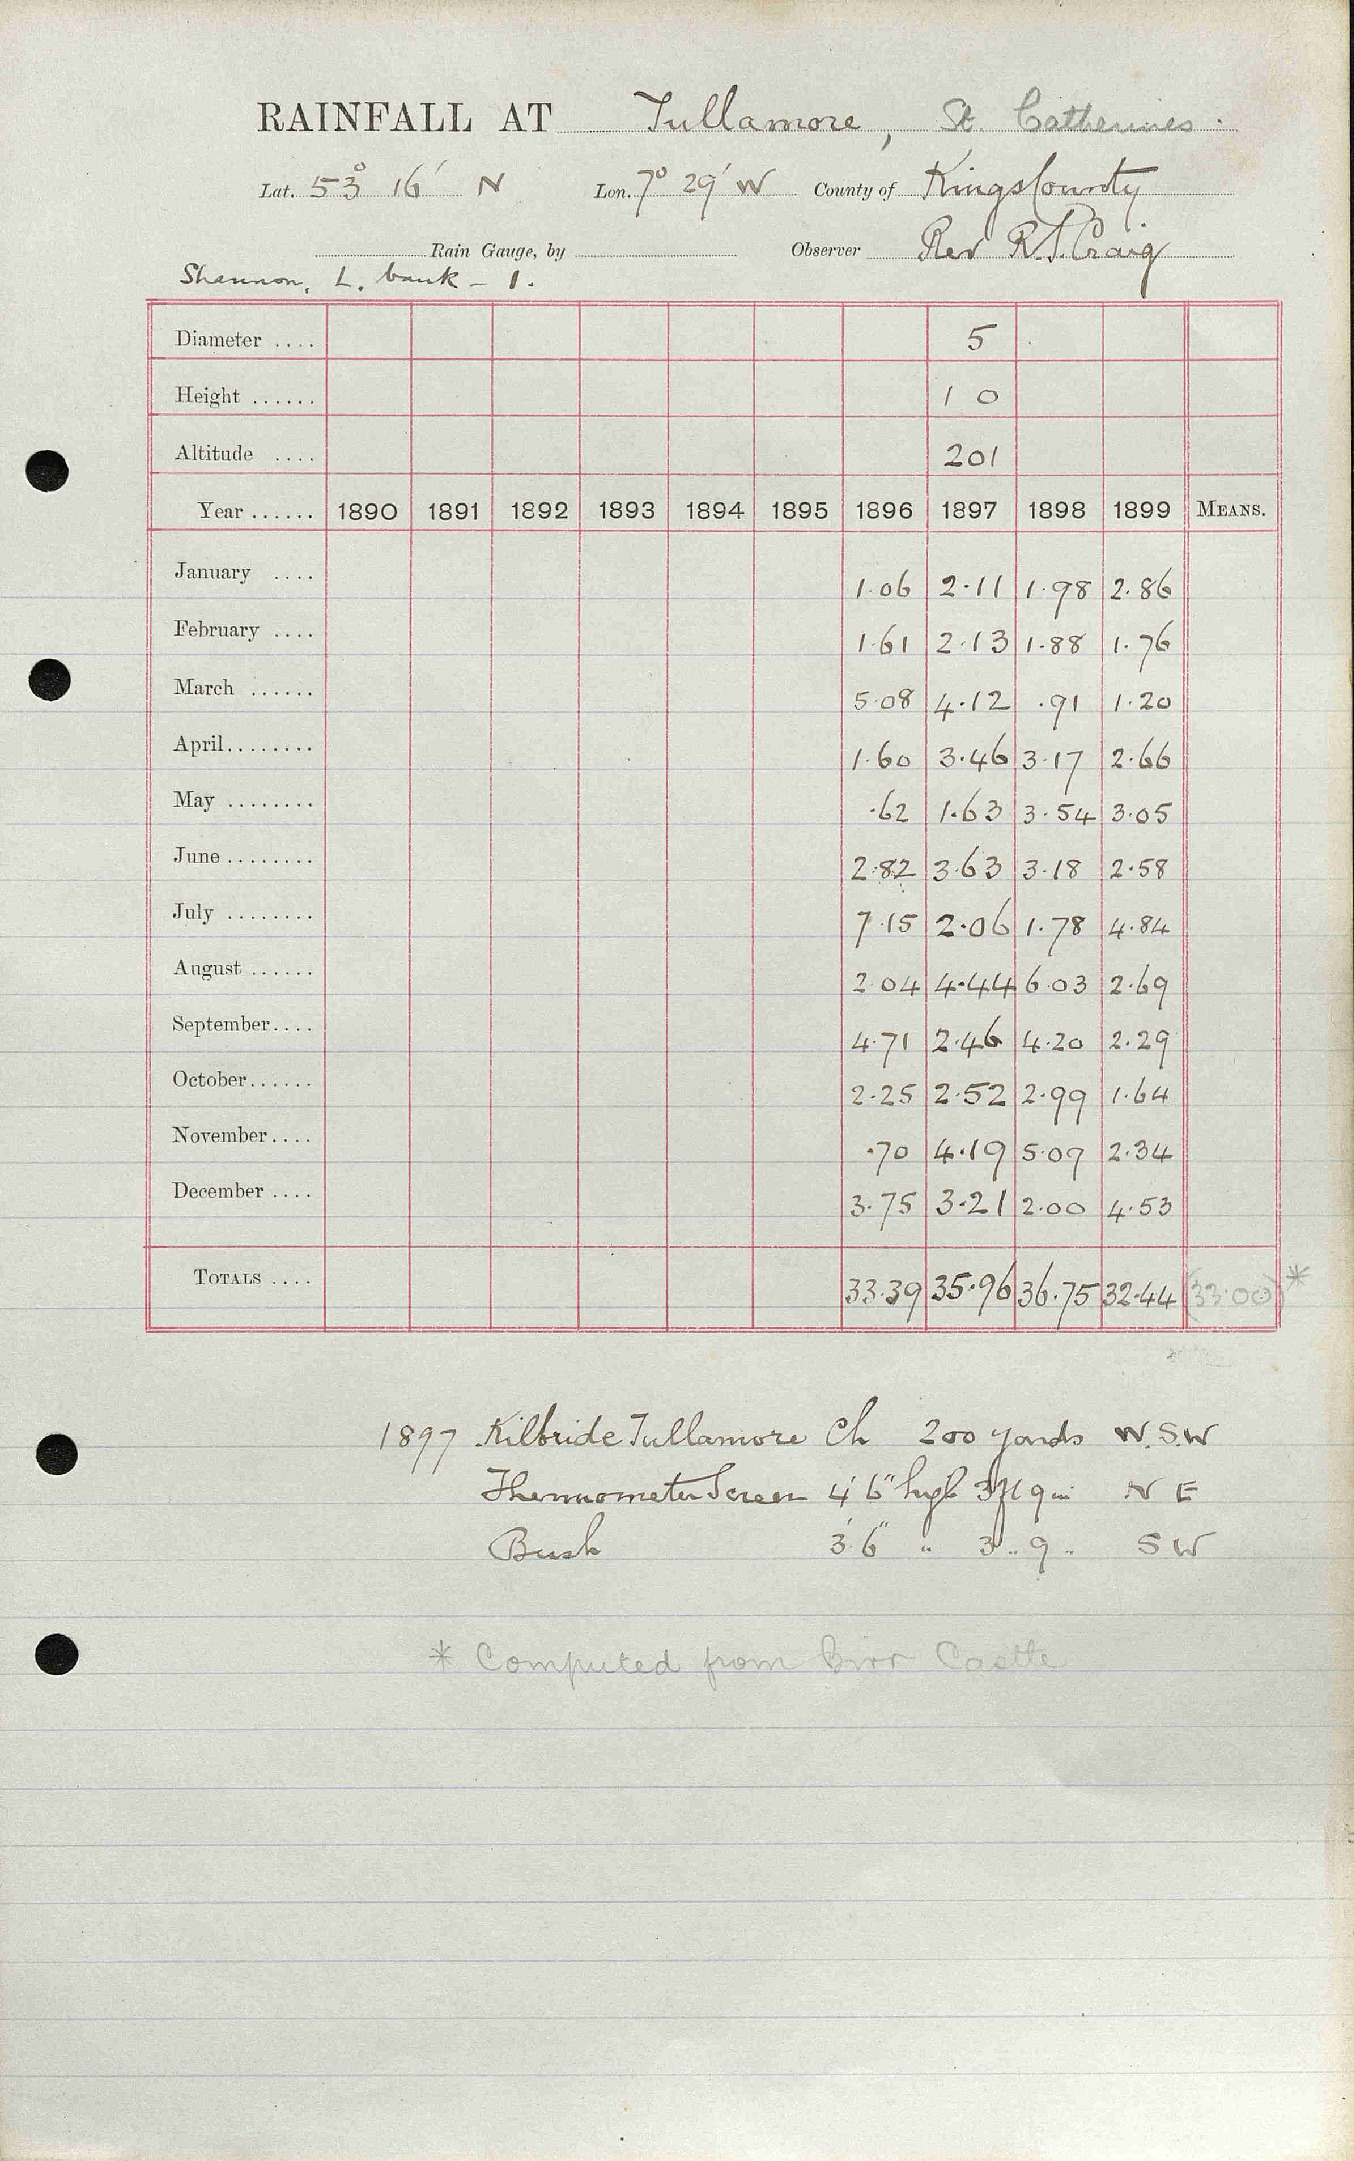 RAINFALL AT Tullamore, St. Catherines.
Lat. 53° 16' N Lon. 7° 29' W County of Kings County
Rain Gauge, by Observer Rev R. S. Craig
Shannon, L. bank - 1.
Diameter .... 5
Height ...... 1 0
Altitude .... 201
Year ...... 1890 1891 1892 1893 1894 1895 1896 1897 1898 1899 MEANS.
January .... 1.06 2.11 1.98 2.86
February .... 1.61 2.13 1.88 1.76
March ...... 5.08 4.12 .91 1.20
April ........ 1.60 3.46 3.17 2.66
May ........ .62 1.63 3.54 3.05
June ........ 2.82 3.63 3.18 2.58
July ........ 7.15 2.06 1.78 4.84
August ...... 2.04 4.44 6.03 2.69
September .... 4.71 2.46 4.20 2.29
October ...... 2.25 2.52 2.99 1.64
November .... .70 4.19 5.09 2.34
December .... 3.75 3.21 2.00 4.53
TOTALS .... 33.39 35.96 36.75 32.44 (33.00) *
1897 Kilbride Tullamore Ch 200 yards W.S.W
Thermometer Screen 4' 6" high 3 ft 9 in N E
Bush 3' 6" " 3 .. 9 .. S W
* Computed from Birr Castle